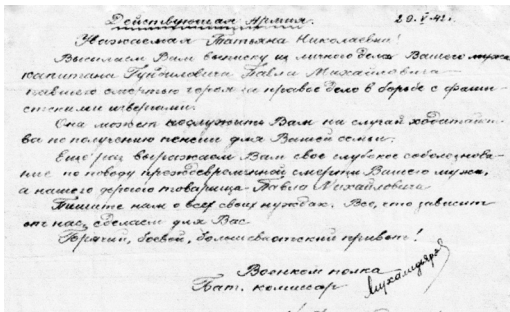 Действующая Армия. 20.V.42г.
Уважаемая Татьяна Николаевна!
Высылаем Вам выписку из личного дела Вашего мужа
капитана Гудиловича Павла Михайловича
павшего смертью героя за правое дело в борьбе с фаши-
стскими извергами.
Она может послужить Вам на случай ходатайст-
ва по получению пенсии для Вашей семьи.
Еще раз выражаем Вам свое глубокое соболезнова-
ние по поводу преждевременной смерти Вашего мужа,
а нашего дорогого товарища Павла Михайловича
Пишите нам о всех своих нуждах. Все, что зависит
от нас, сделаем для Вас
Горячий, боевой, большевистский привет!
Военком полка
Бат. комиссар